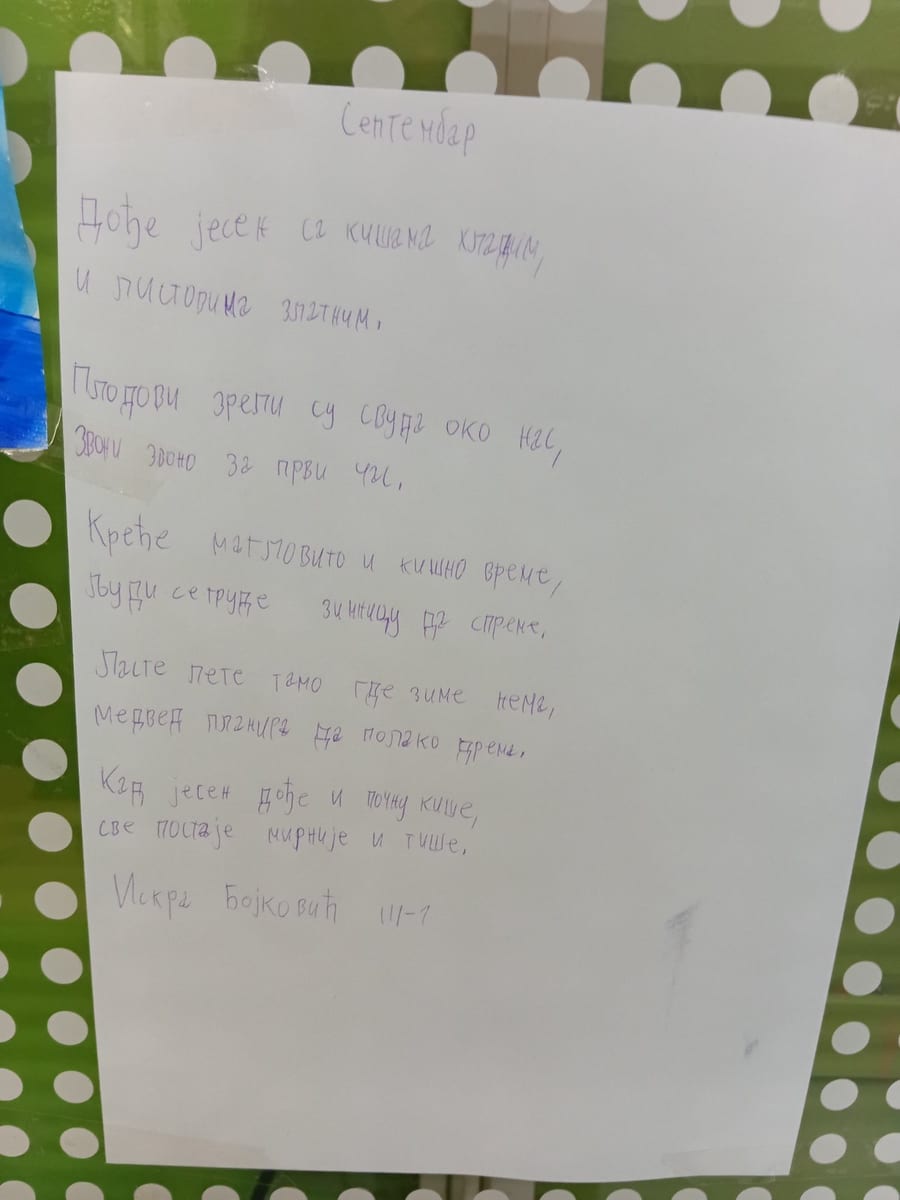 Септембар
Дође јесен са кишама хладим,
и листовима златним.
Плодови зрели су свуда око нас,
Звони звоно за први час.
Креће магловито и кишно време,
људи се труде зимницу да спреме.
Ласте лете тамо где зиме нема,
медвед планира да полако дрема.
Кад јесен дође и почну кише,
све постаје мирније и тише.
Искра Бојковић III-1